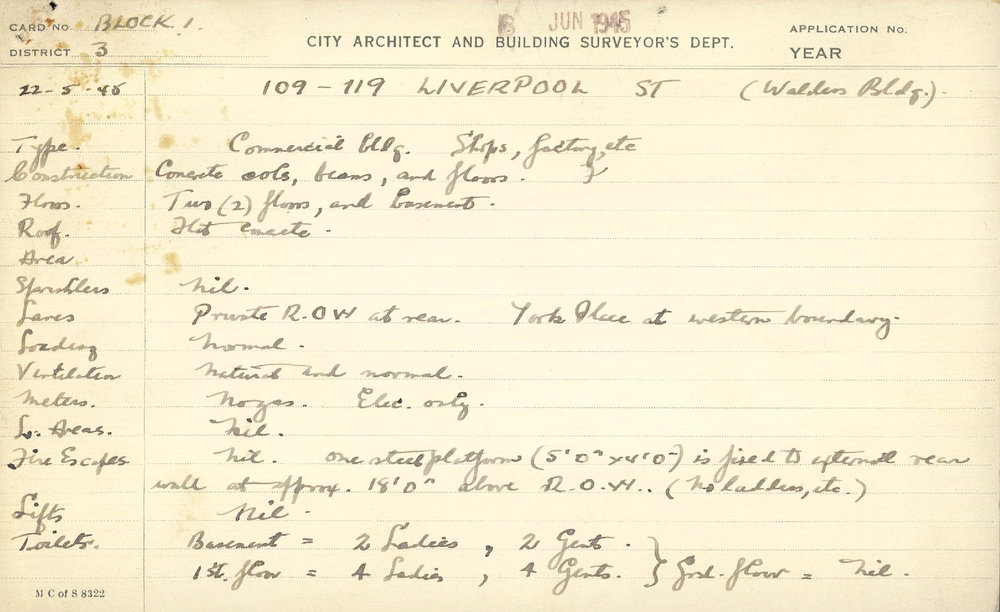 CARD No. BLOCK 1. 18 JUN 1945 APPLICATION No.
DISTRICT 3 CITY ARCHITECT AND BUILDING SURVEYOR'S DEPT. YEAR
22-5-45 109-119 LIVERPOOL ST (Walders Bldg.).
Type. Commercial bldg. Shops, factory, etc
Construction Concrete cols, beams, and floors.
Floors. Two (2) floors, and basement.
Roof. Flat concrete.
Area
Sprinklers Nil.
Lanes Private R.O.W at rear. York Place at western boundary.
Loading Normal.
Ventilation Natural and normal.
Meters. No gas. Elec. only.
L. Areas. Nil.
Fire Escapes Nil. One steel platform (5'0" x 4'0") is fixed to external rear
wall at approx. 18'0" above R.O.W.. (No ladders, etc.)
Lifts Nil.
Toilets. Basement = 2 Ladies, 2 Gents. }
1st. floor = 4 Ladies, 4 Gents. } Grd. floor = Nil.
M C of S 8322